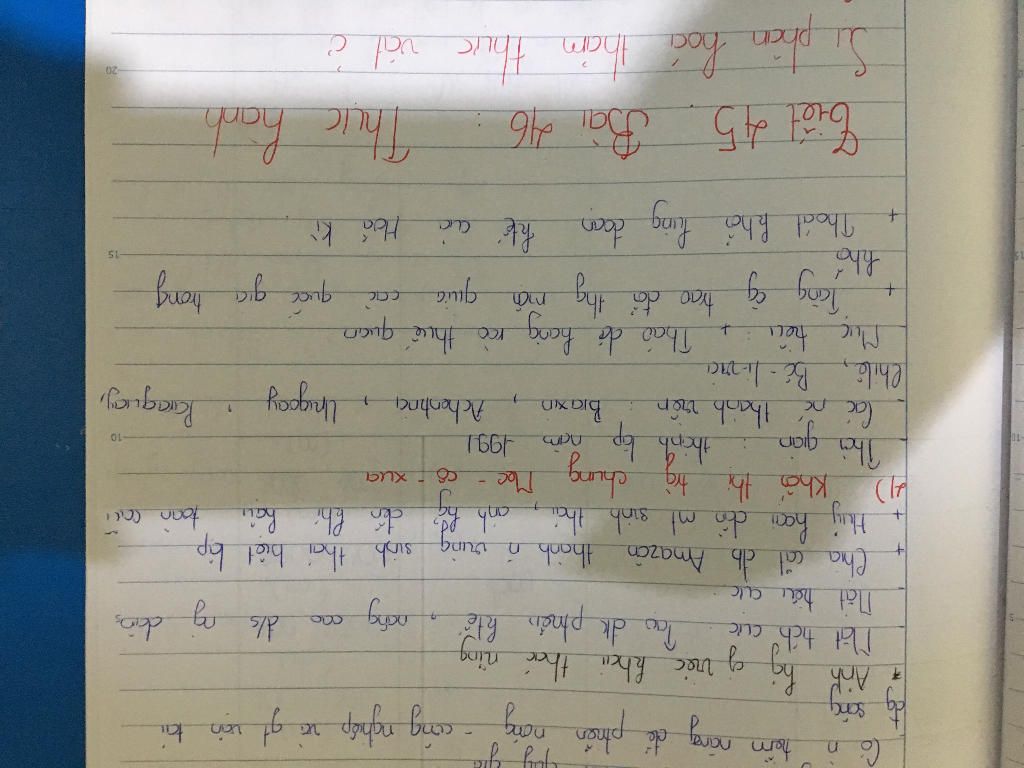 quý giá
Có n tiềm năng để ptriển nông - công nghiệp và gt vận tải
đg sông
* Ảnh hg củ việc khai thác rừng
Mặt tích cực: Tạo đk ptriển ktế, nâng cao đ/s ng dân
Mặt tiêu cực
+ Chia cắt đb Amazôn thành n vùng sinh thái biệt lập
+ Huỷ hoại đến mt sinh thái, ảnh hg đến khí hậu toàn cầu
4) Khối thị tg chung Mec - cô - xua
- Thời gian: thành lập năm 1991
- Các nc thành viên: Braxin, Achentina, Urugoay, Paragoay,
Chilê, Bô-li-via
Mục tiêu: + Tháo dỡ hàng rào thuế quan
+ Tăng cg trao đổi thg mại giữa các quốc gia trong
khối
+ Thoát khỏi lũng đoạn ktế của Hoa Kì
Tiết 45. Bài 46: Thực hành
Sự phân hoá thảm thực vật ở